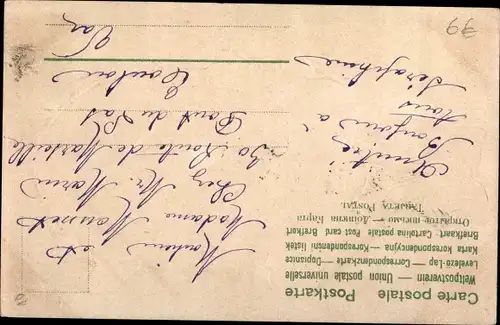 Carte postale Postkarte
Weltpostverein — Union postale universelle
Levelezö-Lap — Correspondenzkarte — Dopisnice
Karta korespondencyjna — Korespondenční lístek
Briefkaart Cartolina postale Post card Brefkort
Открытое письмо — Дописна Карта
Tarjeta Postal
Amitiés
Bonjour à
tous
Séraphine
Monsieur et
Madame
Chez Mr. Marin
30 Route de Marseille
Pont du Las
Toulon
Var
79